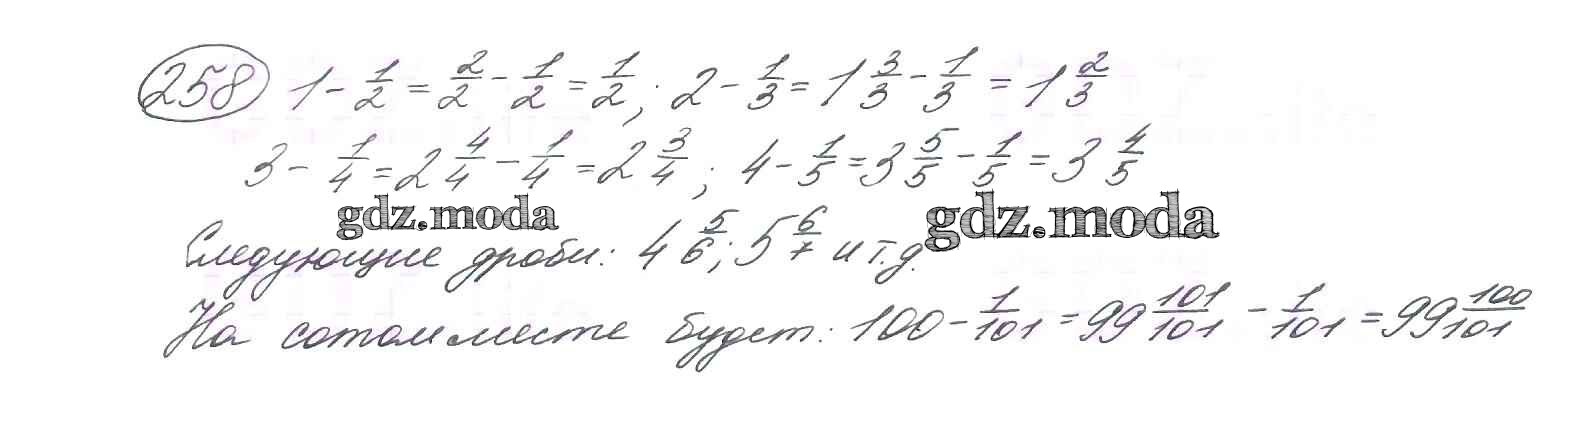 258 1 - 1/2 = 2/2 - 1/2 = 1/2; 2 - 1/3 = 1 3/3 - 1/3 = 1 2/3
3 - 1/4 = 2 4/4 - 1/4 = 2 3/4; 4 - 1/5 = 3 5/5 - 1/5 = 3 4/5
gdz.moda gdz.moda
Следующие дроби: 4 5/6; 5 6/7 и т.д.
На сотом месте будет: 100 - 1/101 = 99 101/101 - 1/101 = 99 100/101